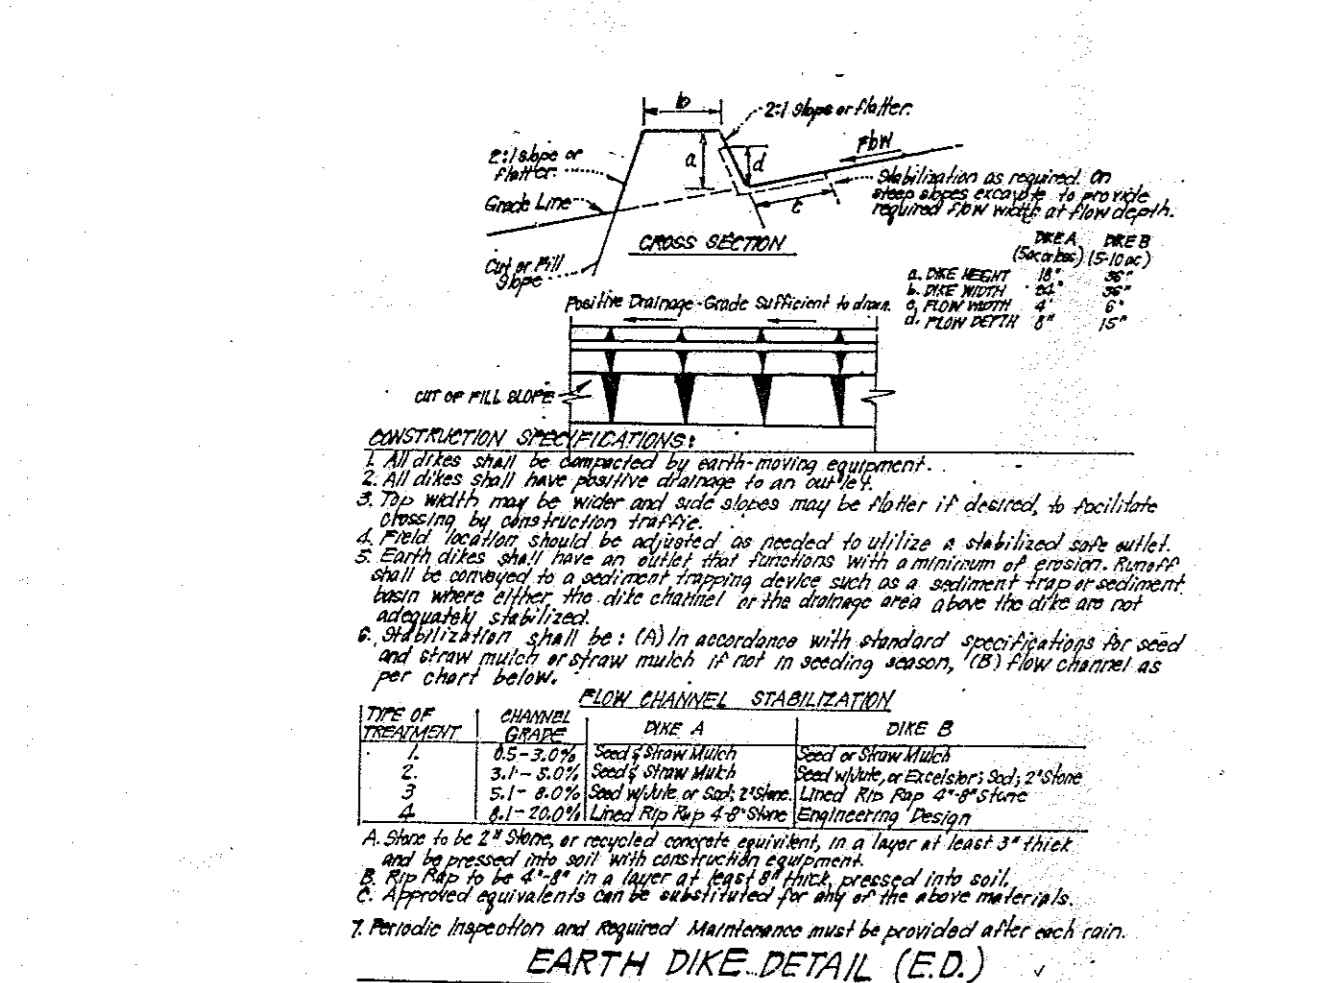 b
2:1 Slope or flatter.
Flow
2:1 slope or
flatter.
a
d
Stabilization as required. On
steep slopes excavate to provide
required flow width at flow depth.
Grade Line
c
CROSS SECTION
Cut or Fill
Slope
DIKE A DIKE B
(5 ac or less) (5-10 ac)
a. DIKE HEIGHT 18" 36"
b. DIKE WIDTH 24" 36"
c. FLOW WIDTH 4' 6'
d. FLOW DEPTH 8" 15"
Positive Drainage - Grade Sufficient to drain.
CUT OF FILL SLOPE
CONSTRUCTION SPECIFICATIONS:
1. All dikes shall be compacted by earth-moving equipment.
2. All dikes shall have positive drainage to an outlet.
3. Top width may be wider and side slopes may be flatter if desired, to facilitate
crossing by construction traffic.
4. Field location should be adjusted as needed to utilize a stabilized safe outlet.
5. Earth dikes shall have an outlet that functions with a minimum of erosion. Runoff
shall be conveyed to a sediment trapping device such as a sediment trap or sediment
basin where either the dike channel or the drainage area above the dike are not
adequately stabilized.
6. Stabilization shall be: (A) In accordance with standard specifications for seed
and straw mulch or straw mulch if not in seeding season, (B) flow channel as
per chart below.
FLOW CHANNEL STABILIZATION
TYPE OF TREATMENT CHANNEL GRADE DIKE A DIKE B
1. 0.5-3.0% Seed & Straw Mulch Seed or Straw Mulch
2. 3.1-5.0% Seed & Straw Mulch Seed w/Jute, or Excelsior; Sod; 2" Stone
3 5.1-8.0% Seed w/Jute, or Sod; 2" Stone Lined Rip Rap 4"-8" Stone
4 8.1-20.0% Lined Rip Rap 4-8" Stone Engineering Design
A. Stone to be 2" Stone, or recycled concrete equivilent, in a layer at least 3" thick
and be pressed into soil with construction equipment.
B. Rip Rap to be 4"-8" in a layer at least 8" thick, pressed into soil.
C. Approved equivalents can be substituted for any of the above materials.
7. Periodic Inspection and Required Maintenance must be provided after each rain.
EARTH DIKE DETAIL (E.D.)